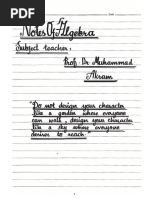 Date
Notes Of Algebra
Subject teacher:
Prof. Dr Muhammad
Akram
"Do not design your character
like a garden where everyone
can walk, design your character
like a sky where everyone
desires to reach"